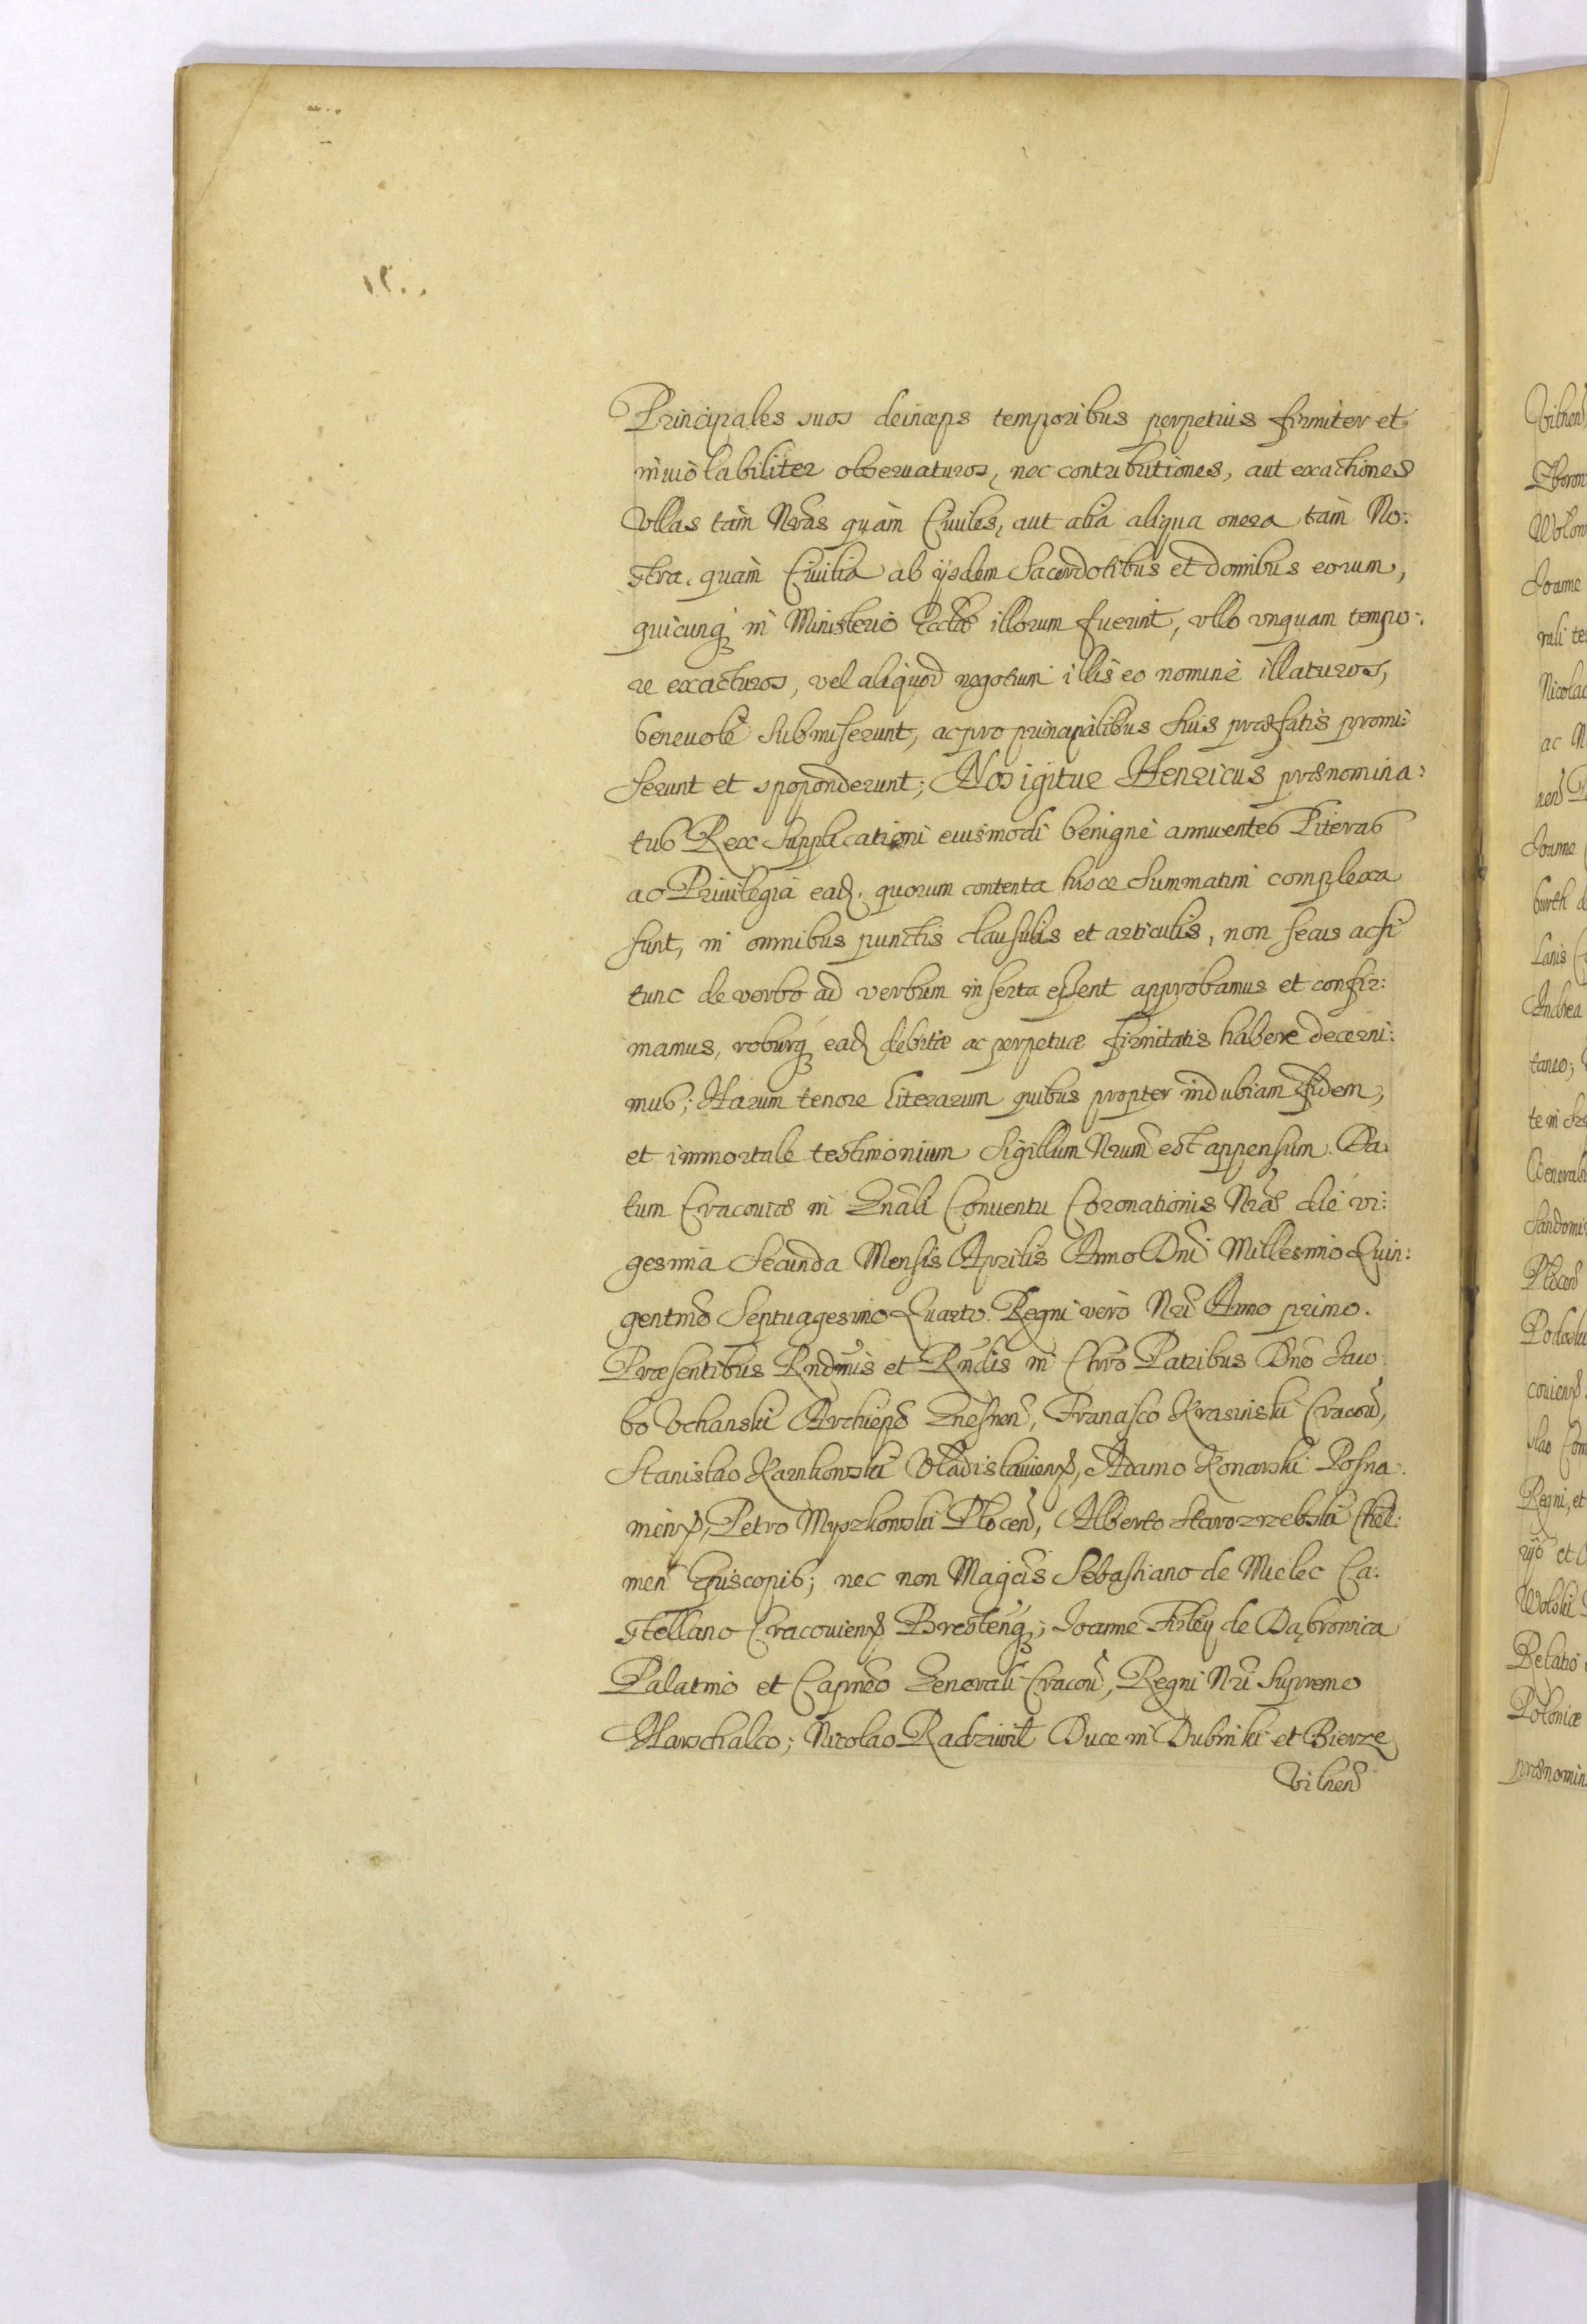 Principales suos deinceps temporibus perpetuis firmiter et
inuiolabiliter obseruaturos, nec contributiones, aut exactiones
Vllas tàm Nras quàm Ciuiles, aut alia aliqua onera tàm No:
stra, quàm Ciuilia ab ijsdem Sacerdotibus et domibus eorum,
quicunq in Ministerio Ecctæ illorum fuerint, vllo vnquam tempo:
re exacturos, vel aliquod negotium illis eo nomine illaturos,
beneuolè submiserunt, ac pro principalibus suis præfatis promi:
serunt et spoponderunt; Nos igitur Henricus prænomina:
tus Rex Supplicationi euismodi benignè annuentes Literas
ac Priuilegia ead. quorum contenta hisce summatim complexa
sunt, in omnibus punctis clausulis et articulis, non secus ac si
tunc de verbo ad verbum inserta essent approbamus et confir:
mamus, roburq ead debitæ ac perpetuæ firmitatis habere decerni:
mus; Harum tenore literarum quibus propter indubiam fidem,
et immortale testimonium Sigillum Nrum est appensum. Da
tum Cracouiæ in Gnali Conuentu Coronationis Nræ die vi:
gesima Secunda Mensis Aprilis Anno Dni Millesimo Quin:
gentmo Septuagesimo Quarto. Regni verò Nri Anno primo.
Præsentibus Rndmis et Rndis in Chro Patribus Dno Iaco
bo Vchanski Archiepo Gnesnen, Francisco Krasinski Cracou,
Stanislao Karnkowski Vladislauien, Adamo Konarski Posna
mien, Petro Myszkowski Plocen, Alberto Starozrzebski Chel:
men Episcopis; nec non Magcis Sebastiano de Mielec Ca:
stellano Cracouien Bresteng; Joanne Firley de Dąbrowica
Palatino et Capneo Generali Cracou, Regni Nri Supremo
Marschalco; Nicolao Radziwil Duce in Dubinki et Bierze
Vilnen